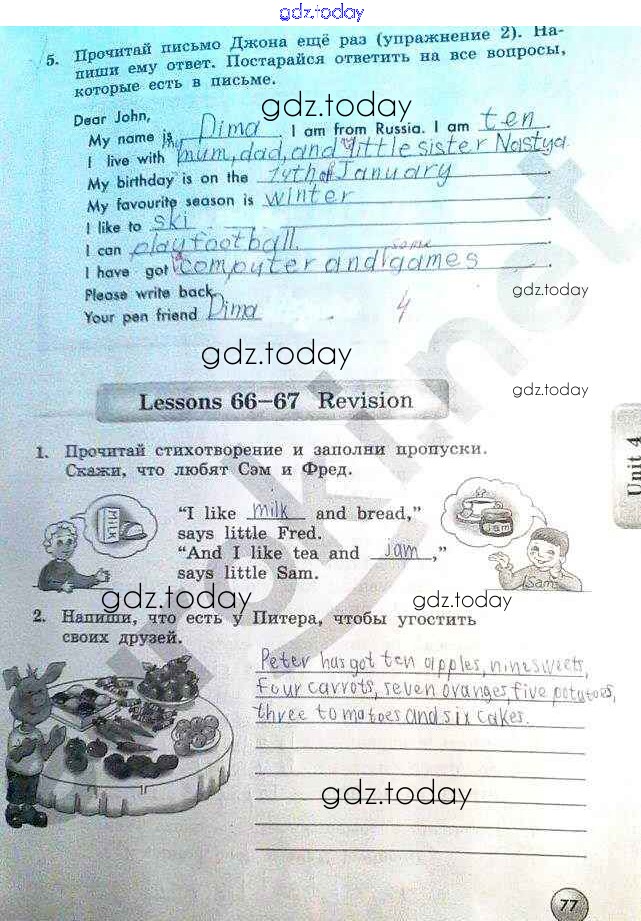 gdz.today
5. Прочитай письмо Джона ещё раз (упражнение 2). На-
пиши ему ответ. Постарайся ответить на все вопросы,
которые есть в письме.
gdz.today
Dear John,
My name is Dima. I am from Russia. I am ten.
I live with my mum, dad, and little sister Nastya.
My birthday is on the 14th of January.
My favourite season is winter.
I like to ski.
I can play football.
I have got computer and some games.
Please write back.
gdz.today
Your pen friend Dima
4
gdz.today
gdz.today
Lessons 66–67 Revision
Unit 4
1. Прочитай стихотворение и заполни пропуски.
Скажи, что любят Сэм и Фред.
MILK
Jam
"I like milk and bread,"
says little Fred.
"And I like tea and jam,"
says little Sam.
Sam
gdz.today
gdz.today
2. Напиши, что есть у Питера, чтобы угостить
своих друзей.
Peter has got ten apples, nine sweets,
four carrots, seven oranges, five potatoes,
three tomatoes and six cakes.
gdz.today
77